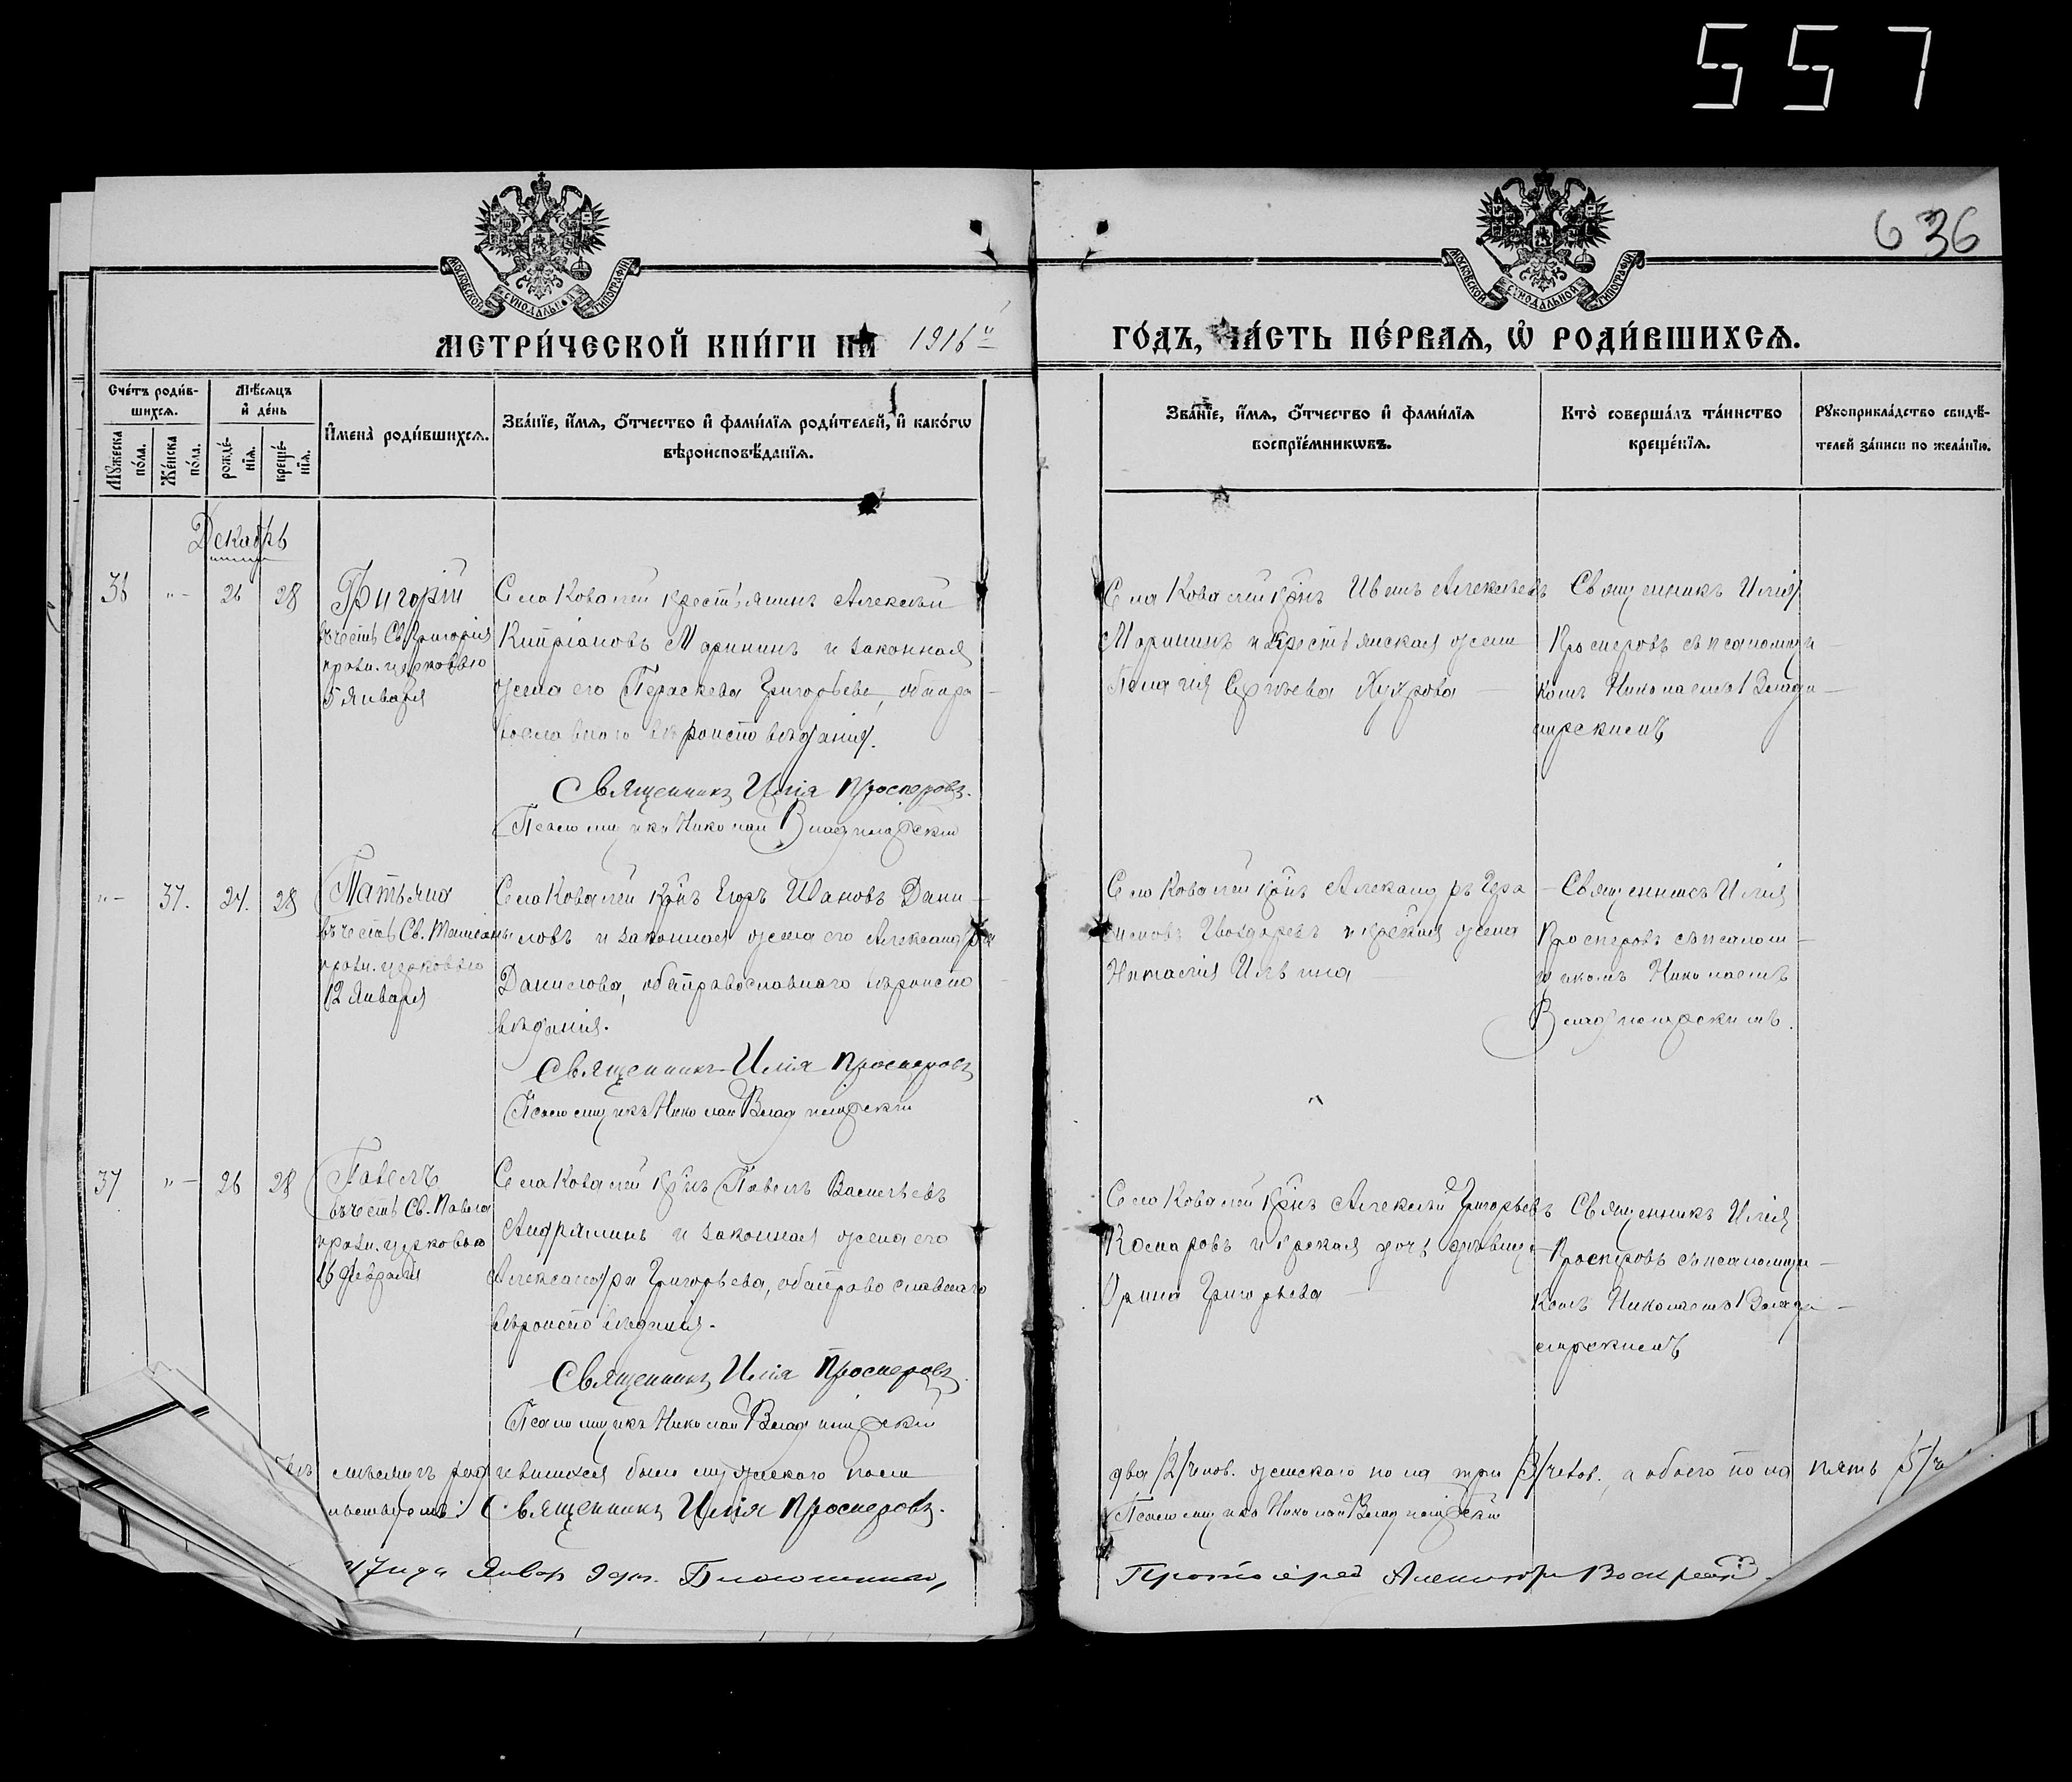 557
636
МОСКОВСКОЙ СѴНОДАЛЬНОЙ ТИПОГРАФІИ
МОСКОВСКОЙ СѴНОДАЛЬНОЙ ТИПОГРАФІИ
МЕТРИ́ЧЕСКОЙ КНИ́ГИ НА 1916й
ГО́ДЪ, ЧА́СТЬ ПЕ́РВАѦ, Ѡ҆ РОДИ́ВШИХСѦ.
Сче́тъ роди́в-
шихсѧ.
Мѣ́сѧцъ
и҆ де́нь
Мꙋ́жеска
по́ла.
Же́нска
по́ла.
рожде́-
нїѧ.
креще́-
нїѧ.
И҆мена̀ роди́вшихсѧ.
Зва́нїе, и҆́мѧ, ѻ҆́тчество и҆ фами́лїѧ роди́телей, и҆ како́гѡ
вѣроисповѣ́данїѧ.
Зва́нїе, и҆́мѧ, ѻ҆́тчество и҆ фами́лїѧ
воспрїе́мникѡвъ.
Кто̀ соверша́лъ та́инство
креще́нїѧ.
Рꙋкоприкла́дство свидѣ́-
телей за́писи по жела́нїю.
Декабрь
36 "- 26 28
Григорій
въ честь Св. Григорія
празн. церковью
5 Января
Села Ковалей крестьянинъ Алексѣй
Кипріановъ Маринин и законная
жена его Параскева Григорьева, оба пра-
вославного вѣроисповѣданія.
Священникъ Илія Просперовъ.
Псаломщикъ Николай Владимірскій
Села Ковалей крнъ Иванъ Алексѣевъ
Маринин и крестьянская жена
Пелагія Сергѣева
Священникъ Илія
Просперовъ съ псаломщи-
комъ Николаемъ Влади-
мірскимъ
"- 37. 24. 28
Татьяна
въ честь Св. Татіаны
празн. церковью
12 Января
Села Ковалей крнъ Егоръ Ивановъ Дани-
ловъ и законная жена его Александра
Данилова, оба православнаго вѣроиспо
вѣданія.
Священникъ Илія Просперовъ
Псаломщикъ Николай Владимірскій
Села Ковалей крнъ Александръ
жена
Наталія Ильина
Священникъ Илія
Просперовъ съ псалом-
щикомъ Николаемъ
Владимірскимъ.
37 "- 26 28
Павелъ
въ честь Св. Павла
празн. церковью
16 Февраля
Села Ковалей крнъ Павелъ Васильевъ
Андрянинъ и законная жена его
Александра Григорьева, оба православнаго
вѣроисповѣданія.
Священникъ Илія Просперовъ.
Псаломщикъ Николай Владимірскій
Села Ковалей крнъ Алексѣй Григорьевъ
Комаровъ и дочь дѣвица
Ирина Григорьева
Священникъ Илія
Просперовъ съ псаломщи-
комъ Николаемъ Влади-
мірскимъ
мѣсяцъ родившихся было мужскаго пола
два /2/ челов. женскаго пола три /3/ челов., а обоего пола пять /5/ ч
Священникъ Илія Просперовъ.
Псаломщикъ Николай Владимірскій
17 года Январ 9 дня. Благочинный,
Протоіерей Александръ